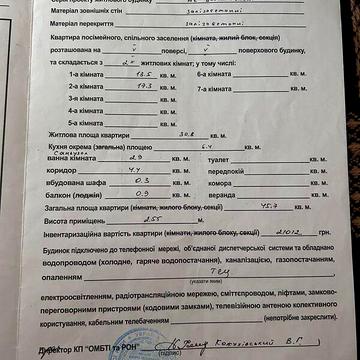 Матеріал зовнішніх стін залізобетонні
Матеріал перекриття залізобетонні
Квартира посімейного, спільного заселення (кімната, жилий блок, секція)
розташована на V поверсі, V поверхового будинку,
та складається з 2х житлових кімнат; у тому числі:
1-а кімната 13.5 кв. м. 6-а кімната кв. м.
2-а кімната 17.3 кв. м. 7-а кімната кв. м.
3-я кімната кв. м.
4-а кімната кв. м.
5-а кімната кв. м.
Житлова площа квартири 30.8 кв. м.
Кухня окрема (загальна) площею 6.4 кв. м.
Санвузол
ванна кімната 2.9 кв. м. туалет кв. м.
коридор 4.4 кв. м. передпокій кв. м.
вбудована шафа 0.3 кв. м. комора кв. м.
балкон (лоджія) 0.9 кв. м. веранда кв. м.
Загальна площа квартири (кімнати, жилого блоку, секції) 45.7 кв. м.
Висота приміщень 2.55 м.
Інвентаризаційна вартість квартири (кімнати, жилого блоку, секції) 21012 грн.
Будинок підключено до телефонної мережі, об'єднаної диспетчерської системи та обладнано
водопроводом (холодне, гаряче водопостачання), каналізацією, газопостачанням,
опаленням ТЕЦ
(указати яким)
електроосвітленням, радіотрансляційною мережею, сміттєпроводом, ліфтами, замково-
переговорними пристроями (кодовими замками), телевізійною антеною колективного
користування, кабельним телебаченням (непотрібне закреслити).
Директор КП "ОМБТІ та РОН" В. Г.
(підпис)